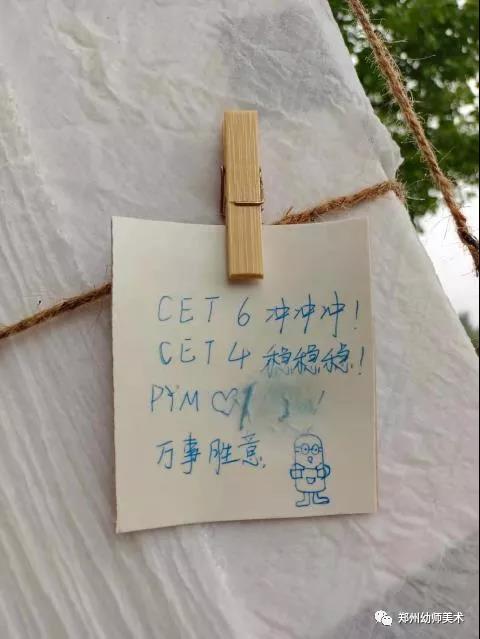 CET 6 冲冲冲!
CET 4 稳稳稳!
PYM♡
万事胜意.
郑州幼师美术